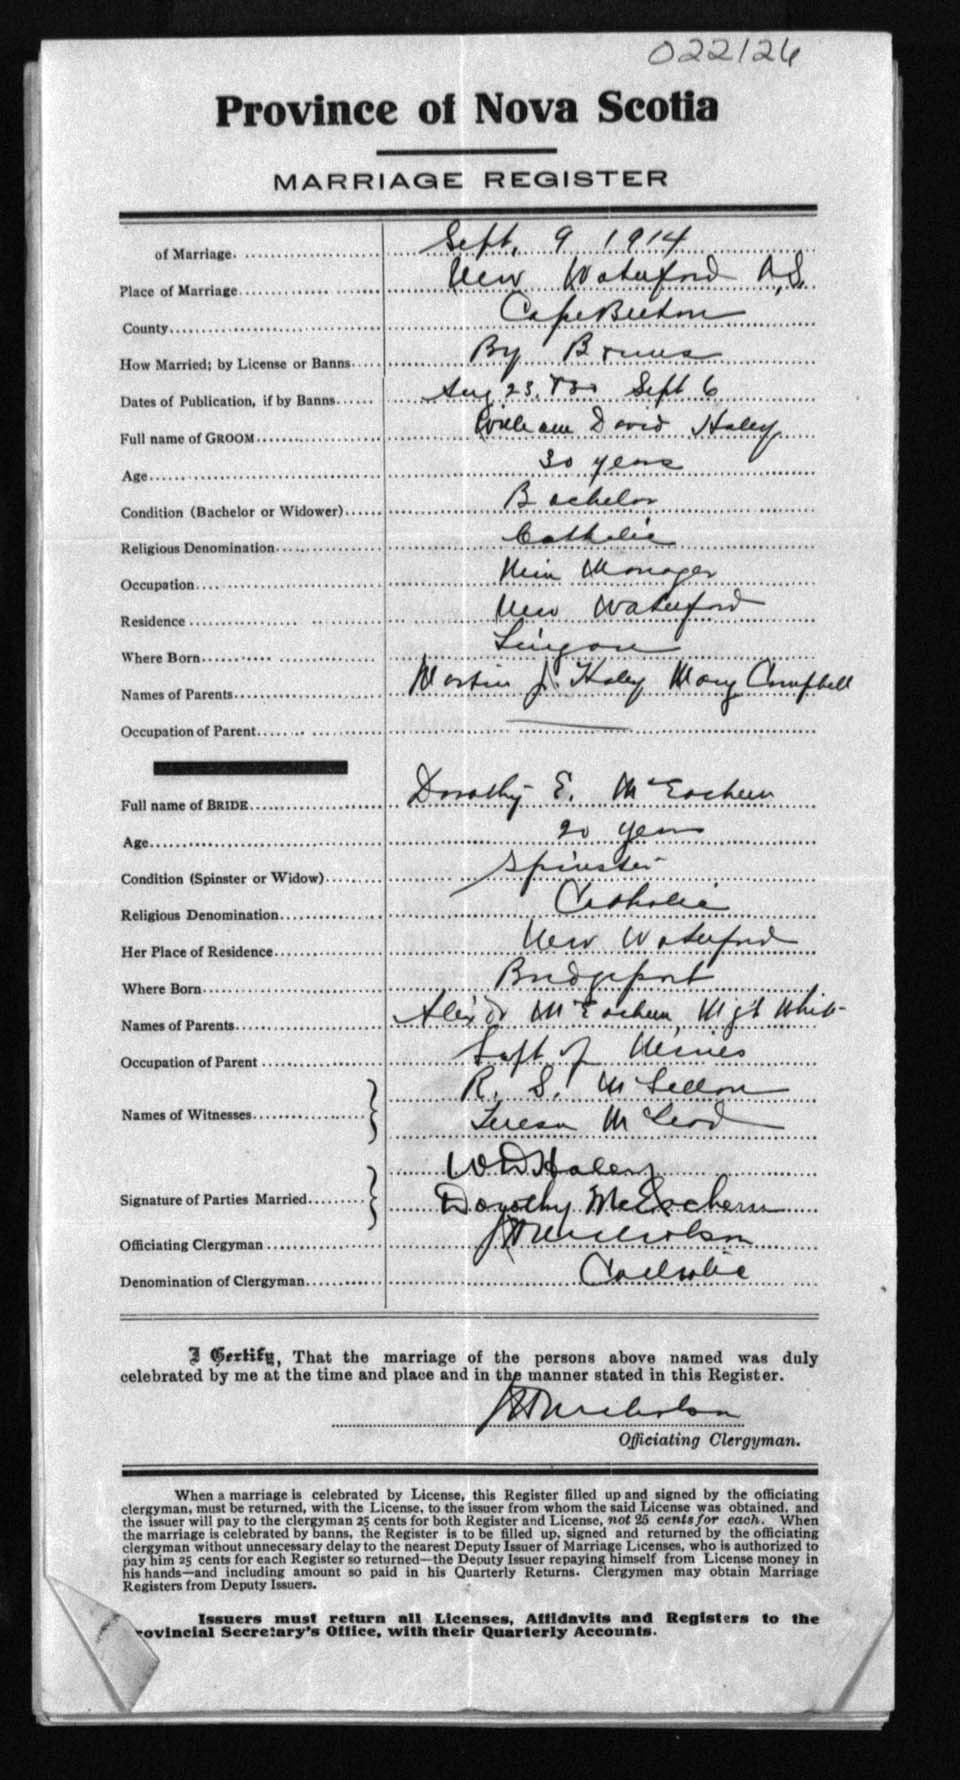 022126
Province of Nova Scotia
MARRIAGE REGISTER
of Marriage. Sept. 9 1914
Place of Marriage New Waterford N.S.
County Cape Breton
How Married; by License or Banns By Banns
Dates of Publication, if by Banns Aug 23, Sept 6
Full name of GROOM William David Haley
Age 30 years
Condition (Bachelor or Widower) Bachelor
Religious Denomination Catholic
Occupation Manager
Residence New Waterford
Where Born Lingan
Names of Parents Martin J. Haley Mary Campbell
Occupation of Parent
Full name of BRIDE Dorothy E. McEachern
Age 20 years
Condition (Spinster or Widow) Spinster
Religious Denomination Catholic
Her Place of Residence New Waterford
Where Born Bridgeport
Names of Parents Alex'dr McEachern, Mg't
Occupation of Parent Supt of Mines
Names of Witnesses R. S. McLellan
Teresa McLeod
W D Haley
Signature of Parties Married Dorothy McEachern
Officiating Clergyman Nicholson
Denomination of Clergyman Catholic
I Certify, That the marriage of the persons above named was duly
celebrated by me at the time and place and in the manner stated in this Register.
Nicholson
Officiating Clergyman.
When a marriage is celebrated by License, this Register filled up and signed by the officiating
clergyman, must be returned, with the License, to the issuer from whom the said License was obtained, and
the issuer will pay to the clergyman 25 cents for both Register and License, not 25 cents for each. When
the marriage is celebrated by banns, the Register is to be filled up, signed and returned by the officiating
clergyman without unnecessary delay to the nearest Deputy Issuer of Marriage Licenses, who is authorized to
pay him 25 cents for each Register so returned—the Deputy Issuer repaying himself from License money in
his hands—and including amount so paid in his Quarterly Returns. Clergymen may obtain Marriage
Registers from Deputy Issuers.
Issuers must return all Licenses, Affidavits and Registers to the
rovincial Secretary's Office, with their Quarterly Accounts.